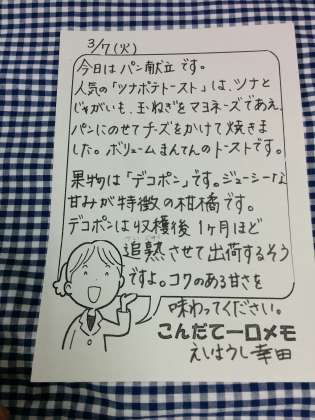 3/7(火)
今日はパン献立です。
人気の「ツナポテトースト」は、ツナと
じゃがいも、玉ねぎをマヨネーズであえ、
パンにのせてチーズをかけて焼きま
した。ボリュームまんてんのトーストです。
果物は「デコポン」です。ジューシーな
甘みが特徴の柑橘です。
デコポンは収穫後1ヶ月ほど
追熟させて出荷するそう
ですよ。コクのある甘さを
味わってください。
こんだて一口メモ
えいようし 幸田